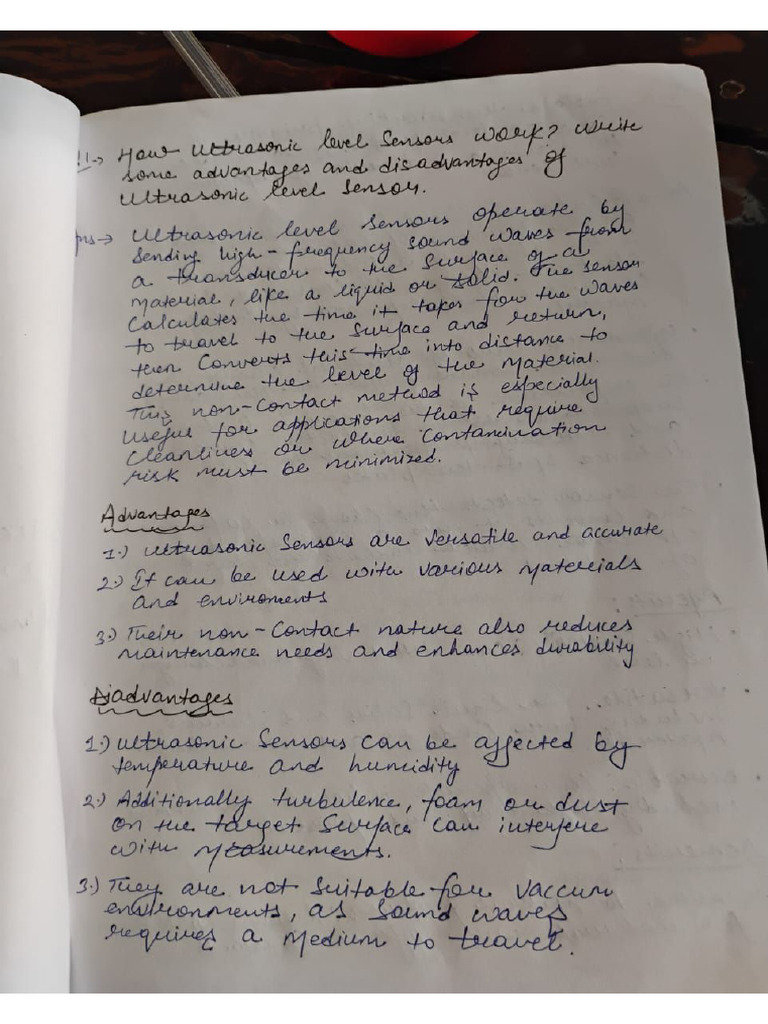 11.→ How Ultrasonic level Sensors work? Write
some advantages and disadvantages of
Ultrasonic level Sensor.
Ans→ Ultrasonic level Sensors operate by
Sending high-frequency sound waves from
a transducer to the Surface of a
material, like a liquid or solid. The sensor
Calculates the time it takes for the waves
to travel to the Surface and return,
then Converts this time into distance to
determine the level of the Material.
This non-Contact method is especially
Useful for applications that require
Cleanliness or where Contamination
risk must be minimized.
Advantages
1.) Ultrasonic Sensors are Versatile and accurate
2.) It can be used with various Matercials
and enviroments
3.) Their non-Contact nature also reduces
maintenance needs and enhances durability
Disadvantages
1.) Ultrasonic Sensors can be affected by
temperature and humidity
2.) Additionally turbulence, foam or dust
on the target Surface can interfere
with measurements.
3.) They are not Suitable for vaccum
environments, as Sound waves
requires a Medium to travel.